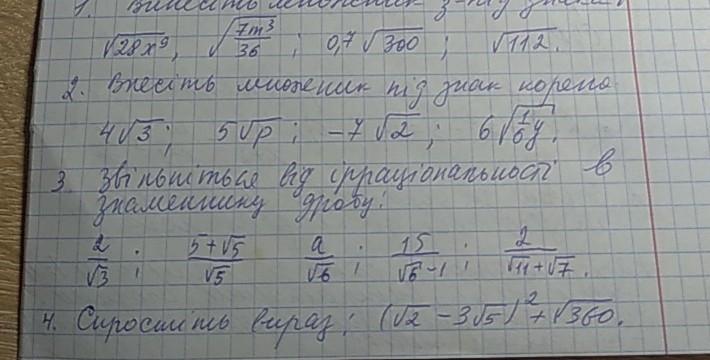 1. Винесіть множник з-під знака
√28x⁹, √(7m³/36); 0,7√300; √112.
2. Внесіть множник під знак кореня
4√3; 5√p; -7√2; 6√(1/6 y).
3. Звільніться від ірраціональності в
знаменнику дробу:
2/√3; (5+√5)/√5 a/√6; 15/(√6-1); 2/(√11+√7).
4. Спростіть вираз: (√2 - 3√5)² + √360.